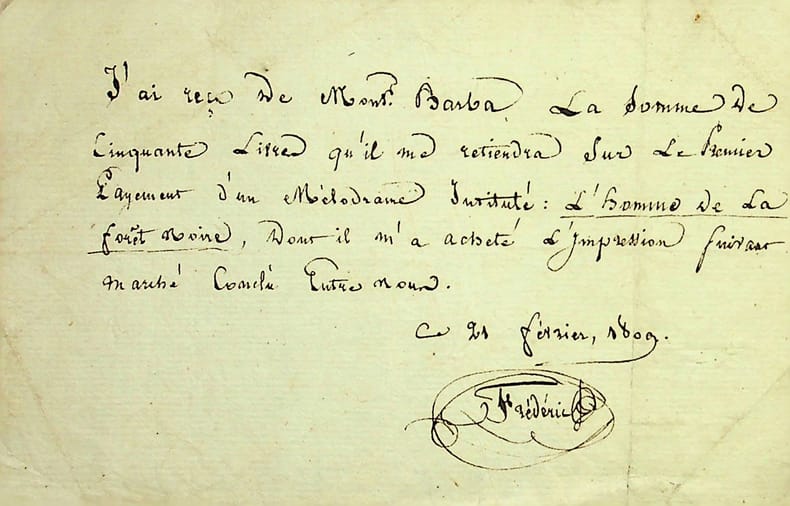 J'ai reçu de Monsr. Barba La Somme de
Cinquante Livres qu'il me retiendra Sur Le Premier
Payement d'un Mélodrame Intitulé : L'homme de La
forêt noire, Dont il m'a acheté L'Impression Suivant
marché Conclu Entre nous.
Ce 21 février, 1809.
Frédéric